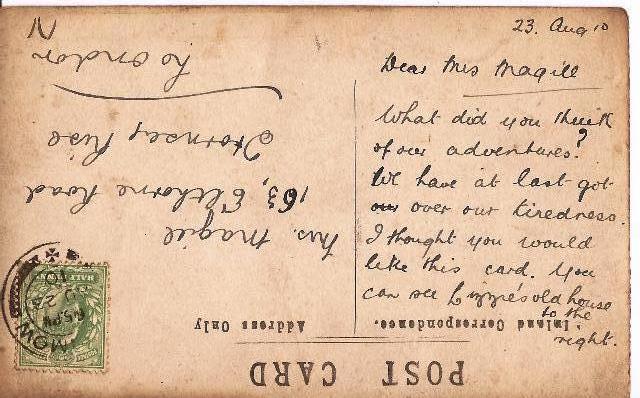 23. Aug 10
Dear Mrs Magill
What did you think
of our adventures?
We have at last got
our over our tiredness.
I thought you would
like this card. You
can see Lizzie's old house
to the
right.
POST CARD
Inland Correspondence.
Address Only
Mrs. Magill
163, Elthorne Road
Hornsey Rise
London
N
HALFPENNY